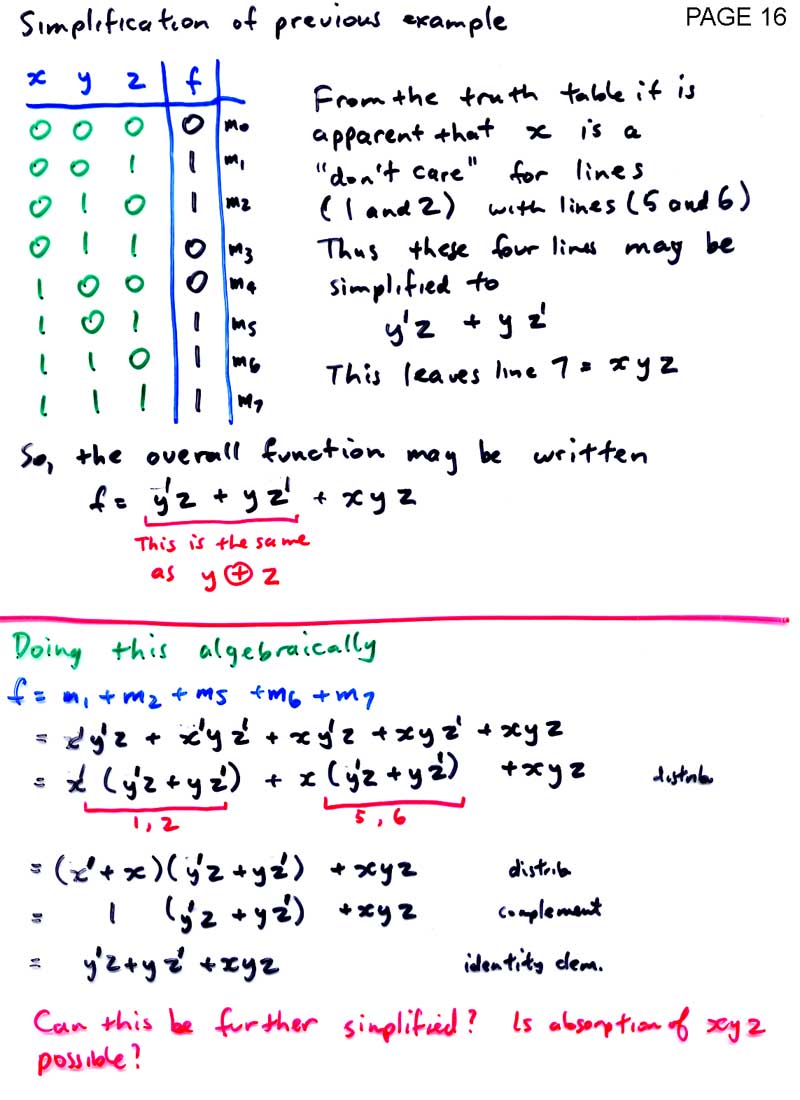 Simplification of previous example PAGE 16
x y z f
0 0 0 0 m0
0 0 1 1 m1
0 1 0 1 m2
0 1 1 0 m3
1 0 0 0 m4
1 0 1 1 m5
1 1 0 1 m6
1 1 1 1 m7
From the truth table it is
apparent that x is a
"don't care" for lines
(1 and 2) with lines (5 and 6)
Thus these four lines may be
simplified to
y'z + yz'
This leaves line 7 = xyz
So, the overall function may be written
f = y'z + yz' + xyz
This is the same
as y ⊕ z
Doing this algebraically
f = m1 + m2 + m5 + m6 + m7
= x'y'z + x'yz' + xy'z + xyz' + xyz
= x'(y'z + yz') + x(y'z + yz') + xyz distrib
1, 2 5, 6
= (x' + x)(y'z + yz') + xyz distrib
= 1 (y'z + yz') + xyz complement
= y'z + yz' + xyz identity elem.
Can this be further simplified? Is absorption of xyz
possible?